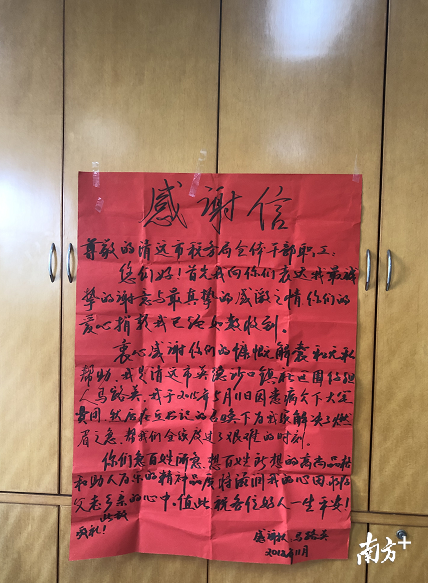 感谢信
尊敬的清远市税务局全体干部职工:
您们好!首先我向你们表达我最诚
挚的谢意与最真挚的感激之情你们的
爱心捐款我已经如数收到。
衷心感谢你们的慷慨解囊和无私
帮助,我是清远市英德沙口镇
人马 英,我于2015年5月11日因患病欠下大量
费用,然后在 书记的 下为我家解决了燃
眉之急,帮我们全家度过了艰难的时刻。
你们急百姓所急,想百姓所想的高尚品格
和助人为乐的精神品质将滋润我的心田
父老乡亲的心中,值此祝各位好人一生平安!
此致
敬礼!
感谢人 马 英
11月
南方+